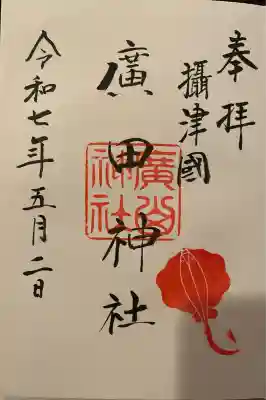 奉拝
攝津國
廣田神社
廣田神社
令和七年五月二日